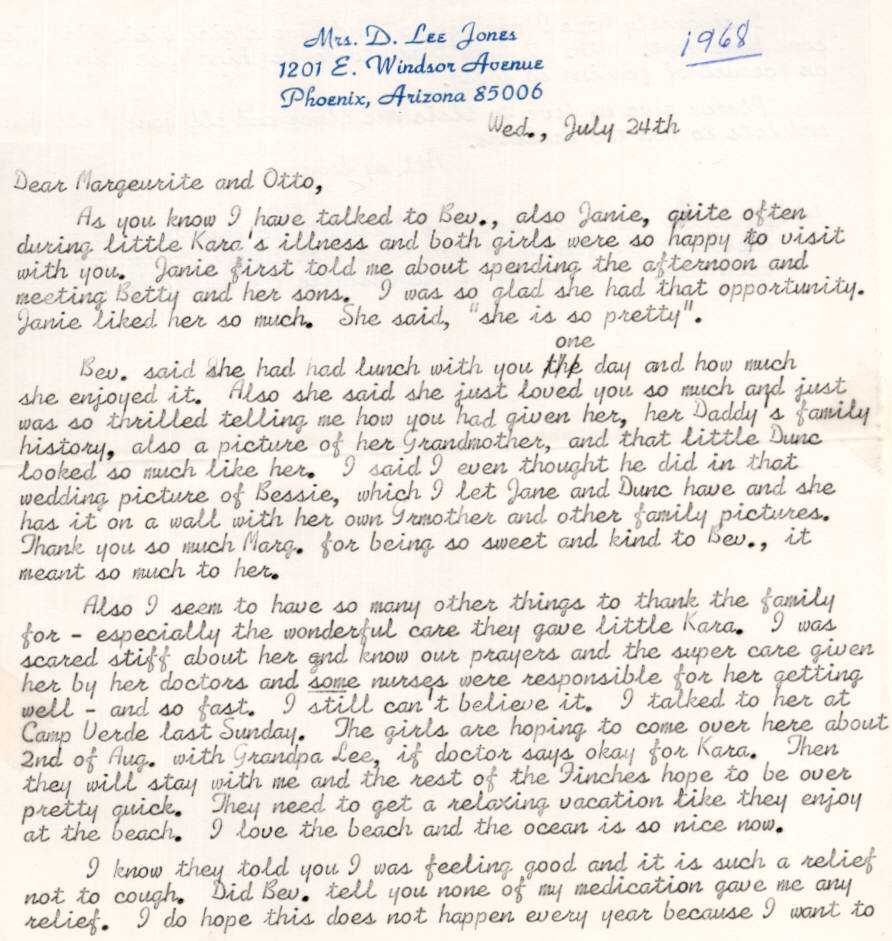 Mrs. D. Lee Jones
1201 E. Windsor Avenue
Phoenix, Arizona 85006
1968
Wed., July 24th
Dear Margeurite and Otto,
As you know I have talked to Bev., also Janie, quite often
during little Kara's illness and both girls were so happy to visit
with you. Janie first told me about spending the afternoon and
meeting Betty and her sons. I was so glad she had that opportunity.
Janie liked her so much. She said, "she is so pretty".
one
Bev. said she had had lunch with you the day and how much
she enjoyed it. Also she said she just loved you so much and just
was so thrilled telling me how you had given her, her Daddy's family
history, also a picture of her Grandmother, and that little Dunc
looked so much like her. I said I even thought he did in that
wedding picture of Bessie, which I let Jane and Dunc have and she
has it on a wall with her own Grmother and other family pictures.
Thank you so much Marg. for being so sweet and kind to Bev., it
meant so much to her.
Also I seem to have so many other things to thank the family
for - especially the wonderful care they gave little Kara. I was
scared stiff about her and know our prayers and the super care given
her by her doctors and some nurses were responsible for her getting
well - and so fast. I still can't believe it. I talked to her at
Camp Verde last Sunday. The girls are hoping to come over here about
2nd of Aug. with Grandpa Lee, if doctor says okay for Kara. Then
they will stay with me and the rest of the Finches hope to be over
pretty quick. They need to get a relaxing vacation like they enjoy
at the beach. I love the beach and the ocean is so nice now.
I know they told you I was feeling good and it is such a relief
not to cough. Did Bev. tell you none of my medication gave me any
relief. I do hope this does not happen every year because I want to